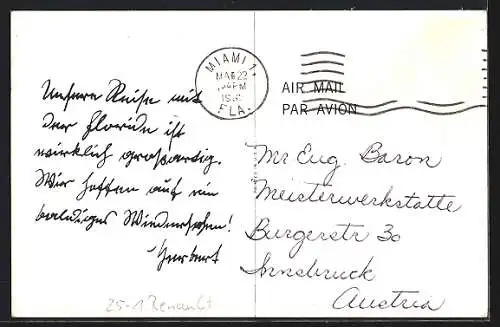 Unsere Reise mit
der Floride ist
wirklich großartig.
Wir hoffen auf ein
baldiges Wiedersehen!
Herbert
25-1 Renault
MIAMI 1.
22
PM
FLA.
AIR MAIL
PAR AVION
Mr Eug. Baron
Meisterwerkstatte
Burgerstr 30
Innsbruck
Austria